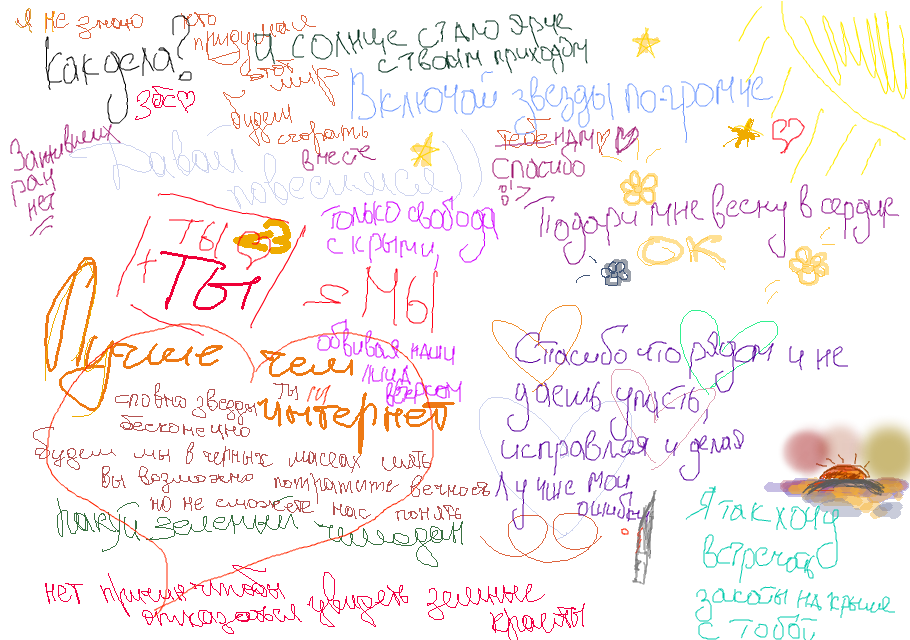 Я не знаю
кто
придумал
этот
мир
будем
сгорать
вместе
как дела?
заеб♡
И солнце стало ярче
с твоим приходом
Включай звезды по-громче
Заживших
ран
нет
Давай
повесимся))
тебе нам ♡
Спасибо
Подари мне весну в сердце
ОК
только свобода
с крыми,
ты <3
+ ты
= мы
обвивая наши
лица
ветром
Лучше чем
ты и
интернет
словно звезды
бесконечно
будем мы в черных массах
вы возможно потратите вечность
но не сможете нас понять
Пакуй зеленый чемодан
нет причин чтобы
отказаться увидеть земные
красоты
Спасибо что рядом и не
даешь упасть,
исправляя и делая
лучше мои
ошибки
Я так хочу
встречать
закаты на крыше
с тобой